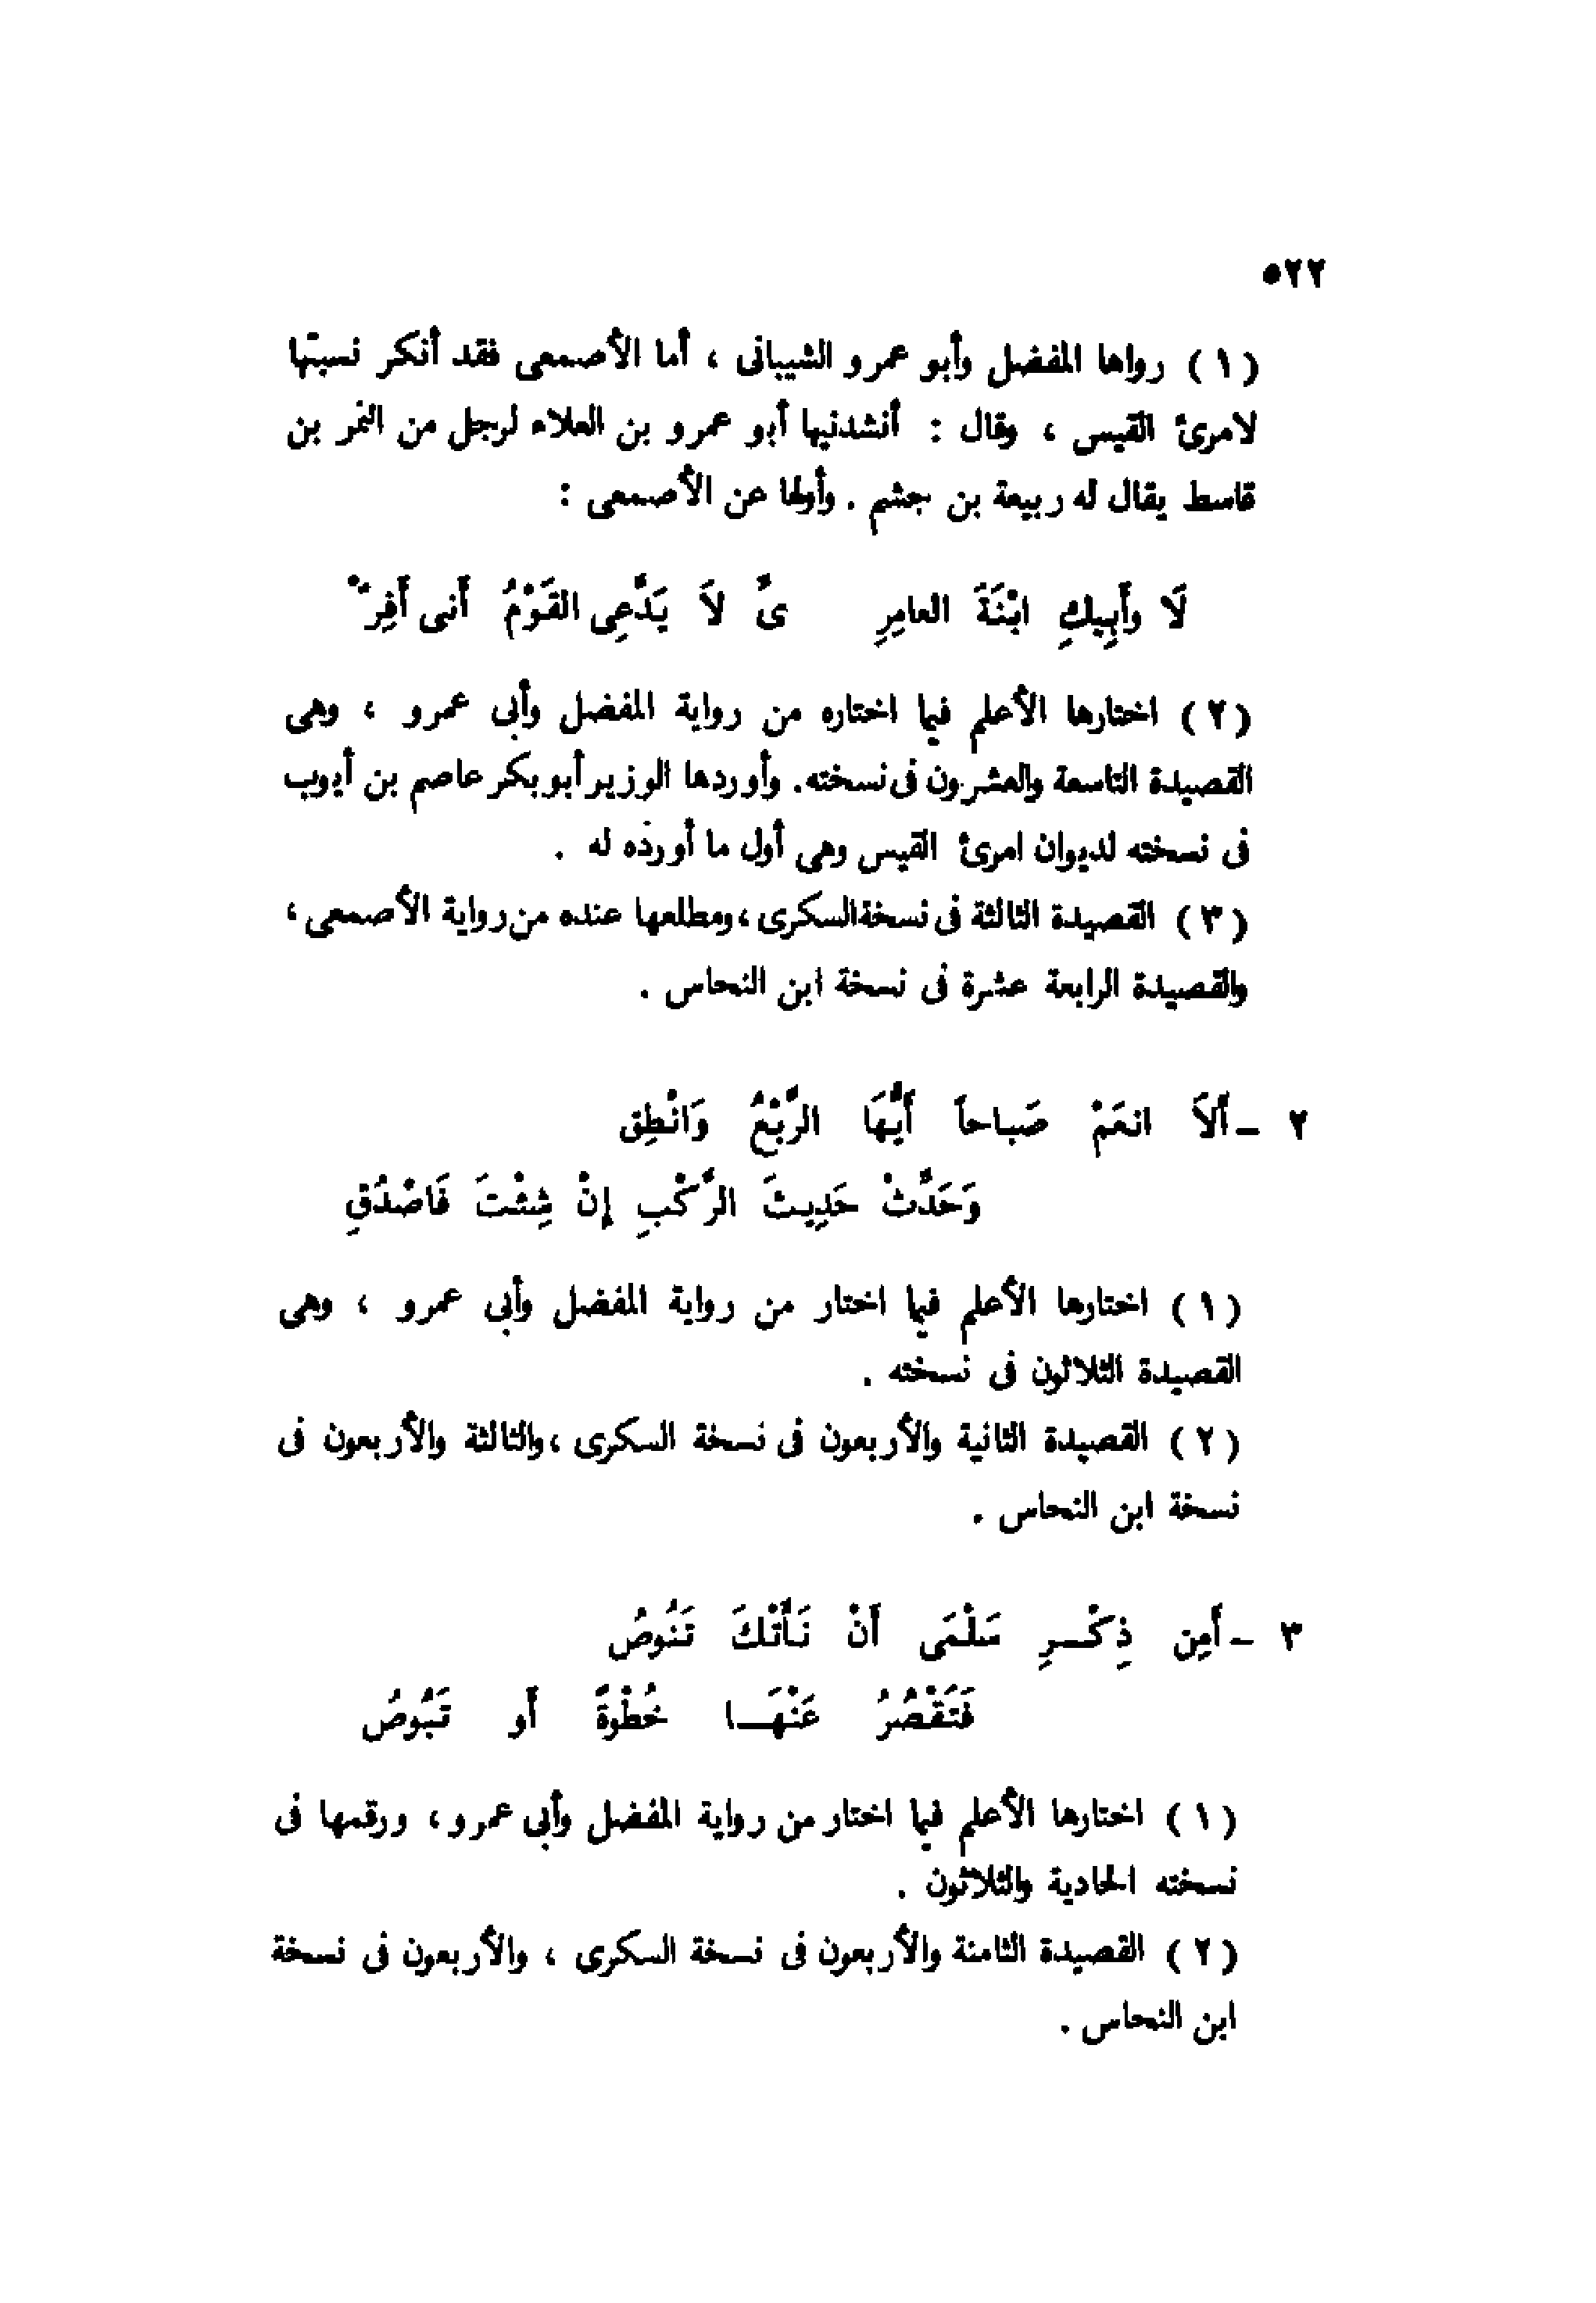 ٥٢٢
( ١ ) رواها المفضل وأبو عمرو الشيبانى ، أما الأصمعى فقد أنكر نسبتها
لامرئ القيس ، وقال : أنشدنيها أبو عمرو بن العلاء لرجل من النمر بن
قاسط يقال له ربيعة بن جشم . وأولها عن الأصمعى :
لَا وأَبِيكِ ابْنَةَ العامِرِ ىِّ لاَ يَدَّعِى القَوْمُ أَنى أَفِرّْ
( ٢ ) اختارها الأعلم فيما اختاره من رواية المفضل وأبى عمرو ، وهى
القصيدة التاسعة والعشرون فى نسخته. وأوردها الوزير أبو بكر عاصم بن أيوب
فى نسخته لديوان امرئ القيس وهى أول ما أورده له .
( ٣ ) القصيدة الثالثة فى نسخة السكرى ، ومطلعها عنده من رواية الأصمعى ،
والقصيدة الرابعة عشرة فى نسخة ابن النحاس .
٢ - أَلاَ انعَمْ صَباحاً أَيُّهَا الرَّبْعُ وَانْطِق
وَحَدِّثْ حَدِيثَ الرَّكْبِ إِنْ شِئْتَ فَاصْدُقِ
( ١ ) اختارها الأعلم فيما اختار من رواية المفضل وأبى عمرو ، وهى
القصيدة الثلاثون فى نسخته .
( ٢ ) القصيدة الثانية والأربعون فى نسخة السكرى ، والثالثة والأربعون فى
نسخة ابن النحاس .
٣ - أَمِن ذِكْــرِ سَلْمَى أَنْ نَأَتْكَ تَنُوصُ
فَتَقْصُرُ عَنْهَــا خُطْوةً أَو تَبُوصُ
( ١ ) اختارها الأعلم فيما اختار من رواية المفضل وأبى عمرو ، ورقمها فى
نسخته الحادية والثلاثون .
( ٢ ) القصيدة الثامنة والأربعون فى نسخة السكرى ، والأربعون فى نسخة
ابن النحاس .